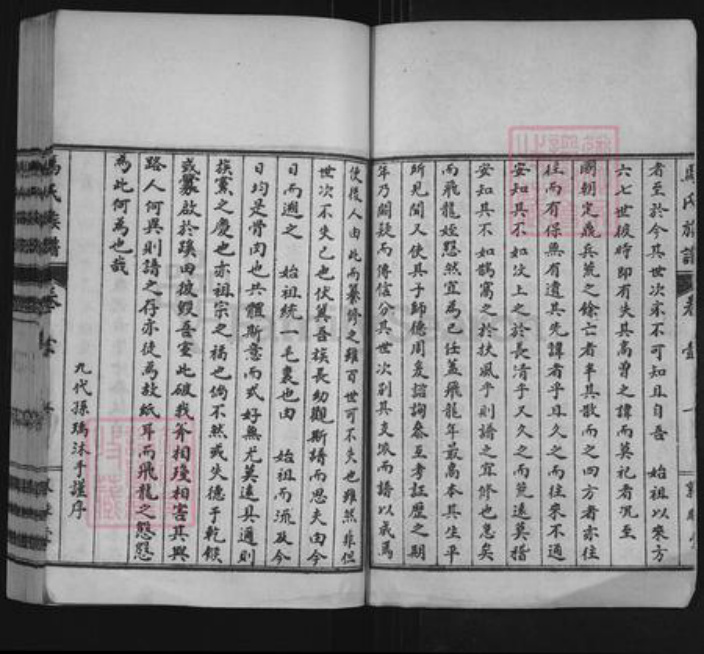 者至於今其世次宗不可知且自吾　始祖以來方
六七世彼時即有失其高曾之諱而莫祀者況至
國朝定鼎兵荒之餘亡者半其散而之四方者亦往
往而有保無有遺其先諱者乎且久之而往來不通
安知其不如汶上之於長清乎又久之而荒遠莫稽
安知其不如鵲窩之於扶風乎則譜之宜修也急矣
而飛龍姪慇然宜為己任蓋飛龍年最高本其生平
所見聞又使其子師德周爰諮詢參互考証歷之期
年乃闕疑而傳信分其世次別其支派而譜以成焉
使後人由此而纂修之雖百世可不失也雖然非但
世次不失已也伏冀吾族長幼觀斯譜而思夫由今
日而遡之　始祖統一毛裏也由　始祖而流及今
日均是骨肉也共體斯意而式好無尤莫遠具邇則
族黨之慶也亦祖宗之福也倘不然或失德于乾餱
或釁啟於蹊田彼毀吾室此破我斧相殘相害其與
路人何異則譜之存亦徒為故紙耳而飛龍之慇慇
為此何為也哉
九代孫瑀沐手謹序
馬氏族譜
卷